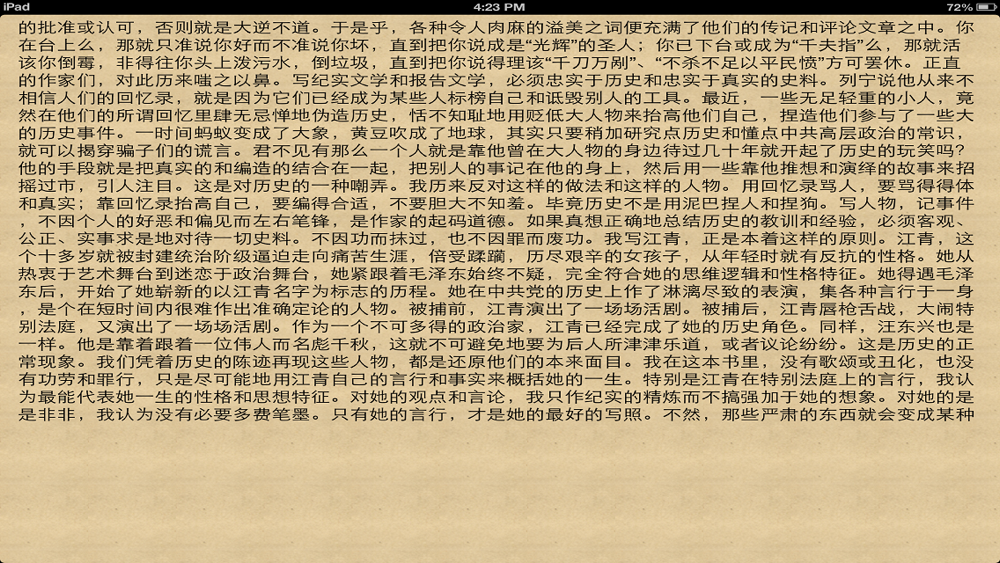 iPad 4:23 PM 72%
的批准或认可，否则就是大逆不道。于是乎，各种令人肉麻的溢美之词便充满了他们的传记和评论文章之中。你
在台上么，那就只准说你好而不准说你坏，直到把你说成是“光辉”的圣人；你已下台或成为“千夫指”么，那就活
该你倒霉，非得往你头上泼污水，倒垃圾，直到把你说得理该“千刀万剐”、“不杀不足以平民愤”方可罢休。正直
的作家们，对此历来嗤之以鼻。写纪实文学和报告文学，必须忠实于历史和忠实于真实的史料。列宁说他从来不
相信人们的回忆录，就是因为它们已经成为某些人标榜自己和诋毁别人的工具。最近，一些无足轻重的小人，竟
然在他们的所谓回忆里肆无忌惮地伪造历史，恬不知耻地用贬低大人物来抬高他们自己，捏造他们参与了一些大
的历史事件。一时间蚂蚁变成了大象，黄豆吹成了地球，其实只要稍加研究点历史和懂点中共高层政治的常识，
就可以揭穿骗子们的谎言。君不见有那么一个人就是靠他曾在大人物的身边待过几十年就开起了历史的玩笑吗？
他的手段就是把真实的和编造的结合在一起，把别人的事记在他的身上，然后用一些靠他推想和演绎的故事来招
摇过市，引人注目。这是对历史的一种嘲弄。我历来反对这样的做法和这样的人物。用回忆录骂人，要骂得得体
和真实；靠回忆录抬高自己，要编得合适，不要胆大不知羞。毕竟历史不是用泥巴捏人和捏狗。写人物，记事件
，不因个人的好恶和偏见而左右笔锋，是作家的起码道德。如果真想正确地总结历史的教训和经验，必须客观、
公正、实事求是地对待一切史料。不因功而抹过，也不因罪而废功。我写江青，正是本着这样的原则。江青，这
个十多岁就被封建统治阶级逼迫走向痛苦生涯，倍受蹂躏，历尽艰辛的女孩子，从年轻时就有反抗的性格。她从
热衷于艺术舞台到迷恋于政治舞台，她紧跟着毛泽东始终不疑，完全符合她的思维逻辑和性格特征。她得遇毛泽
东后，开始了她崭新的以江青名字为标志的历程。她在中共党的历史上作了淋漓尽致的表演，集各种言行于一身
，是个在短时间内很难作出准确定论的人物。被捕前，江青演出了一场场活剧。被捕后，江青唇枪舌战，大闹特
别法庭，又演出了一场场活剧。作为一个不可多得的政治家，江青已经完成了她的历史角色。同样，汪东兴也是
一样。他是靠着跟着一位伟人而名彪千秋，这就不可避免地要为后人所津津乐道，或者议论纷纷。这是历史的正
常现象。我们凭着历史的陈迹再现这些人物，都是还原他们的本来面目。我在这本书里，没有歌颂或丑化，也没
有功劳和罪行，只是尽可能地用江青自己的言行和事实来概括她的一生。特别是江青在特别法庭上的言行，我认
为最能代表她一生的性格和思想特征。对她的观点和言论，我只作纪实的精炼而不搞强加于她的想象。对她的是
是非非，我认为没有必要多费笔墨。只有她的言行，才是她的最好的写照。不然，那些严肃的东西就会变成某种